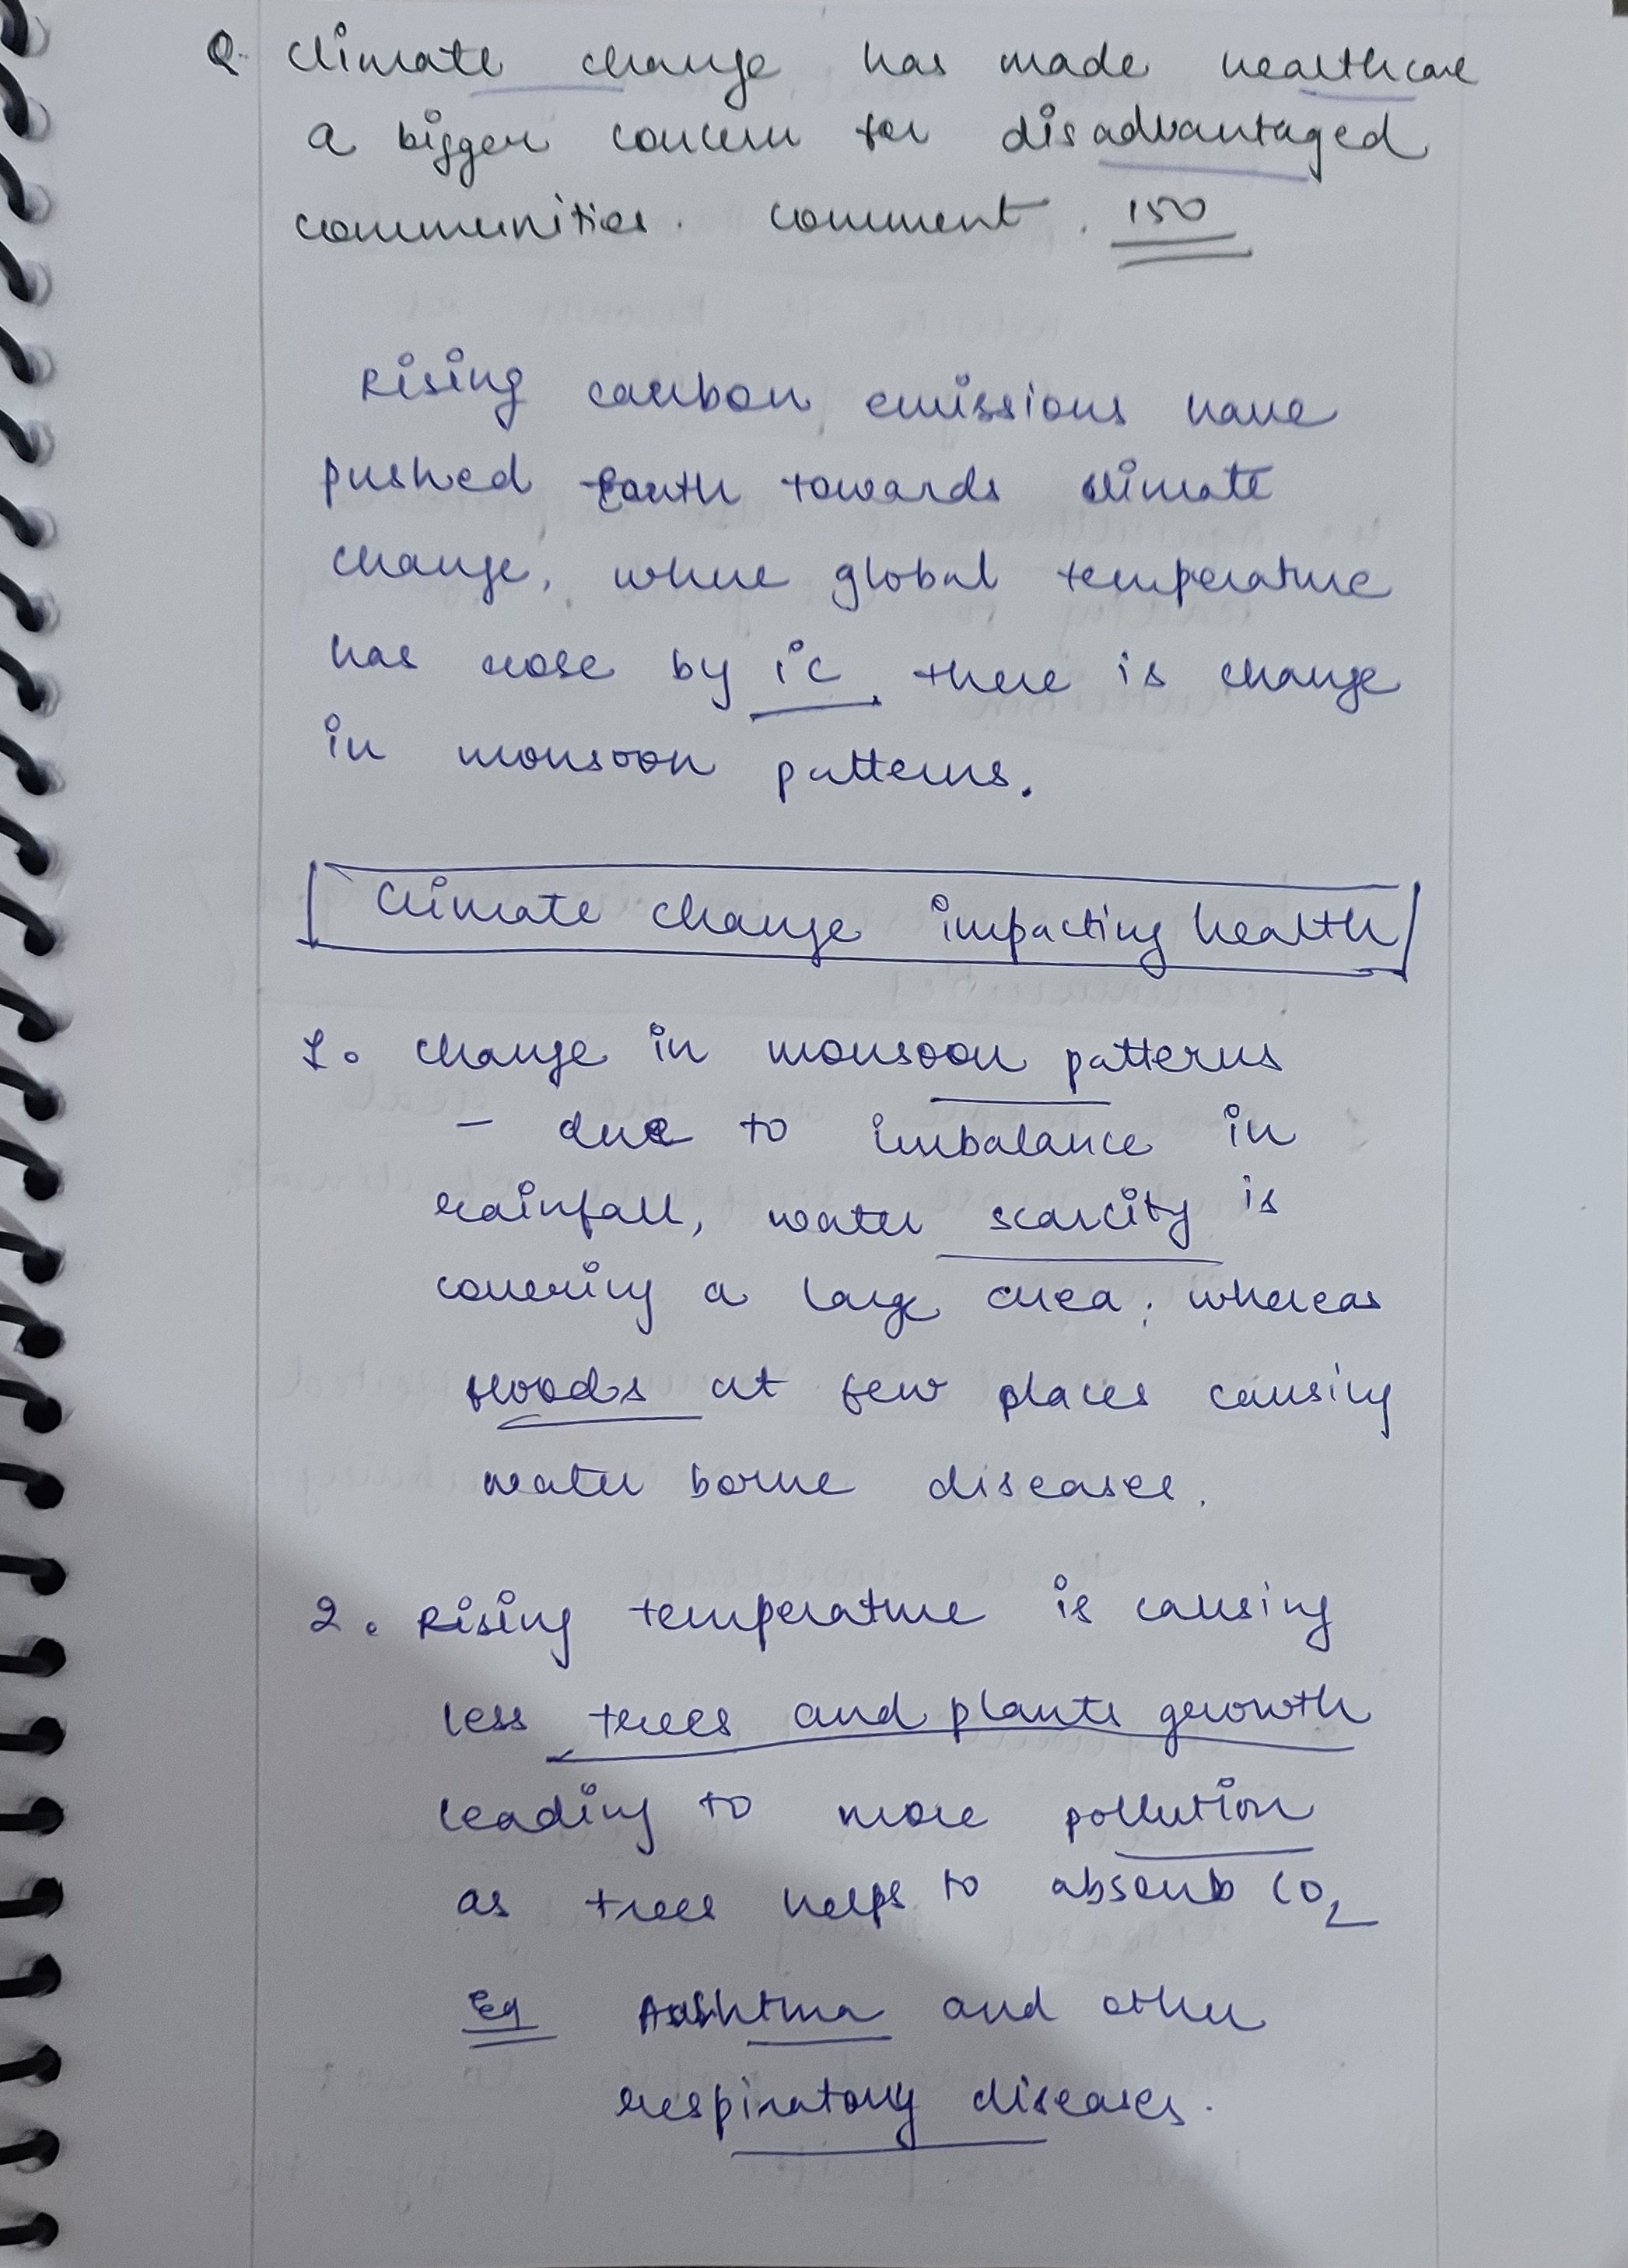 Q. Climate change has made healthcare
a bigger concern for disadvantaged
communities. Comment. 150
Rising carbon emissions have
pushed Earth towards climate
change, where global temperature
has rose by 1°C, there is change
in monsoon patterns.
Climate change impacting health
1. Change in monsoon patterns
- due to imbalance in
rainfall, water scarcity is
covering a large area, whereas
floods at few places causing
water borne diseases.
2. Rising temperature is causing
less trees and plants growth
leading to more pollution
as trees helps to absorb CO2
Eg Ashtma and other
respiratory diseases.